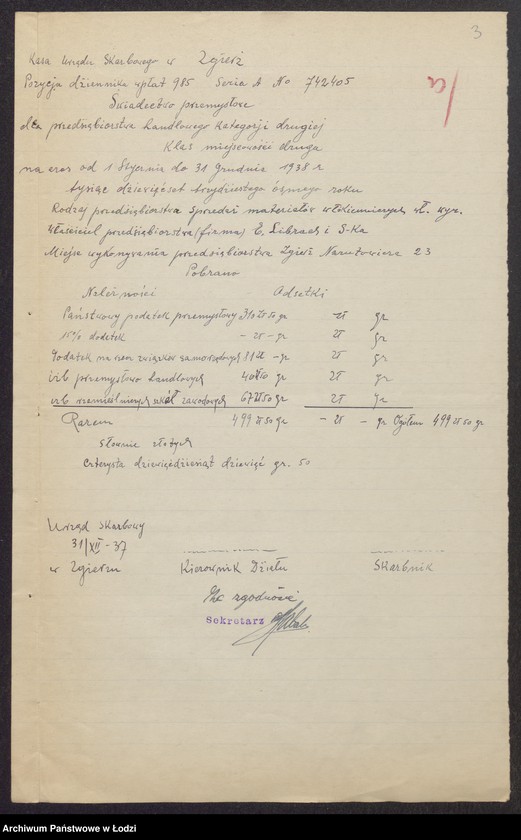 3
a/
Kasa Urzędu Skarbowego w Zgierz
Pozycja dziennika wpłat 985 Seria A No 742405
Świadectwo przemysłowe
dla przedsiębiorstwa handlowego kategorji drugiej
Klas miejscowości druga
na czas od 1 Stycznia do 31 grudnia 1938 r
tysiąc dziewięćset trzydziestego ósmego roku
Rodzaj przedsiębiorstwa Sprzedaż materiałów włókienniczych wł. wyr.
Właściciel przedsiębiorstwa (firma) C. Librach i S-ka
Miejsce wykonywania przedsiębiorstwa Zgierz Narutowicza 23
Pobrano
Należności Odsetki
Państwowy podatek przemysłowy 310 zł 50 gr zł gr
15% dodatek – zł – gr zł gr
Dodatek na rzecz związków samorządnych 81 zł – gr zł gr
izb przemysłowo handlowych gr zł gr
izb rzemieślniczych szkół zawodowych 67 zł 50 gr zł gr
Razem 499 zł 50 gr – zł – gr Ogółem 499 zł 50 gr
Słownie złotych
Czterysta dziewięćdziesiąt dziewięć gr. 50
Urząd Skarbowy
31/XII - 37
w Zgierzu Kierownik Działu Skarbnik
Za zgodność
Sekretarz
Archiwum Państwowe w Łodzi